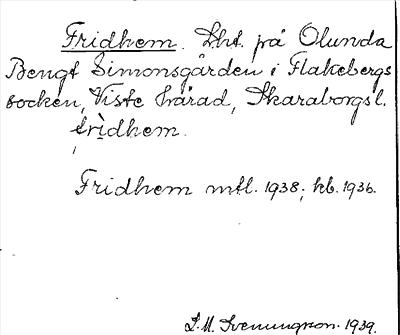 Fridhem. Lht. på Olunda
Bengt Simonsgården i Flakebergs
socken, Viste härad, Skaraborgs l.
frìdhem.
Fridhem mtl. 1938; kb. 1936.
S.M. Svenungson. 1939.